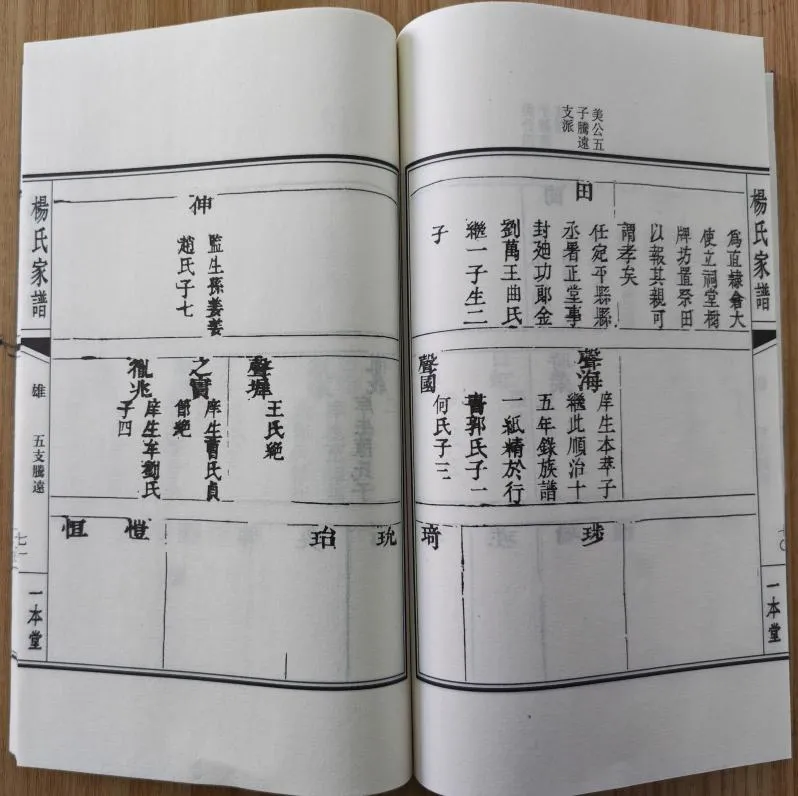 美公五
子騰遠
支派
楊氏家譜
為直隸會大
使立祠堂樹
牌坊置祭田
以報其親可
謂孝矣
田
任宛平縣縣
丞署正堂事
封廸功郞金
劉萬王曲氏
繼一子生二
子
聲海
庠生本萃子
繼此順治十
五年錄族譜
一紙精於行
書郭氏子一
聲國
何氏子三
琦
一本堂
伸
監生孫姜姜
趙氏子七
聲墀
王氏絶
之賓
庠生曹氏貞
節絶
胤兆
庠生牟劉氏
子四
玧
珆
愷
恒
楊氏家譜
雄
五支騰遠
七一
一本堂